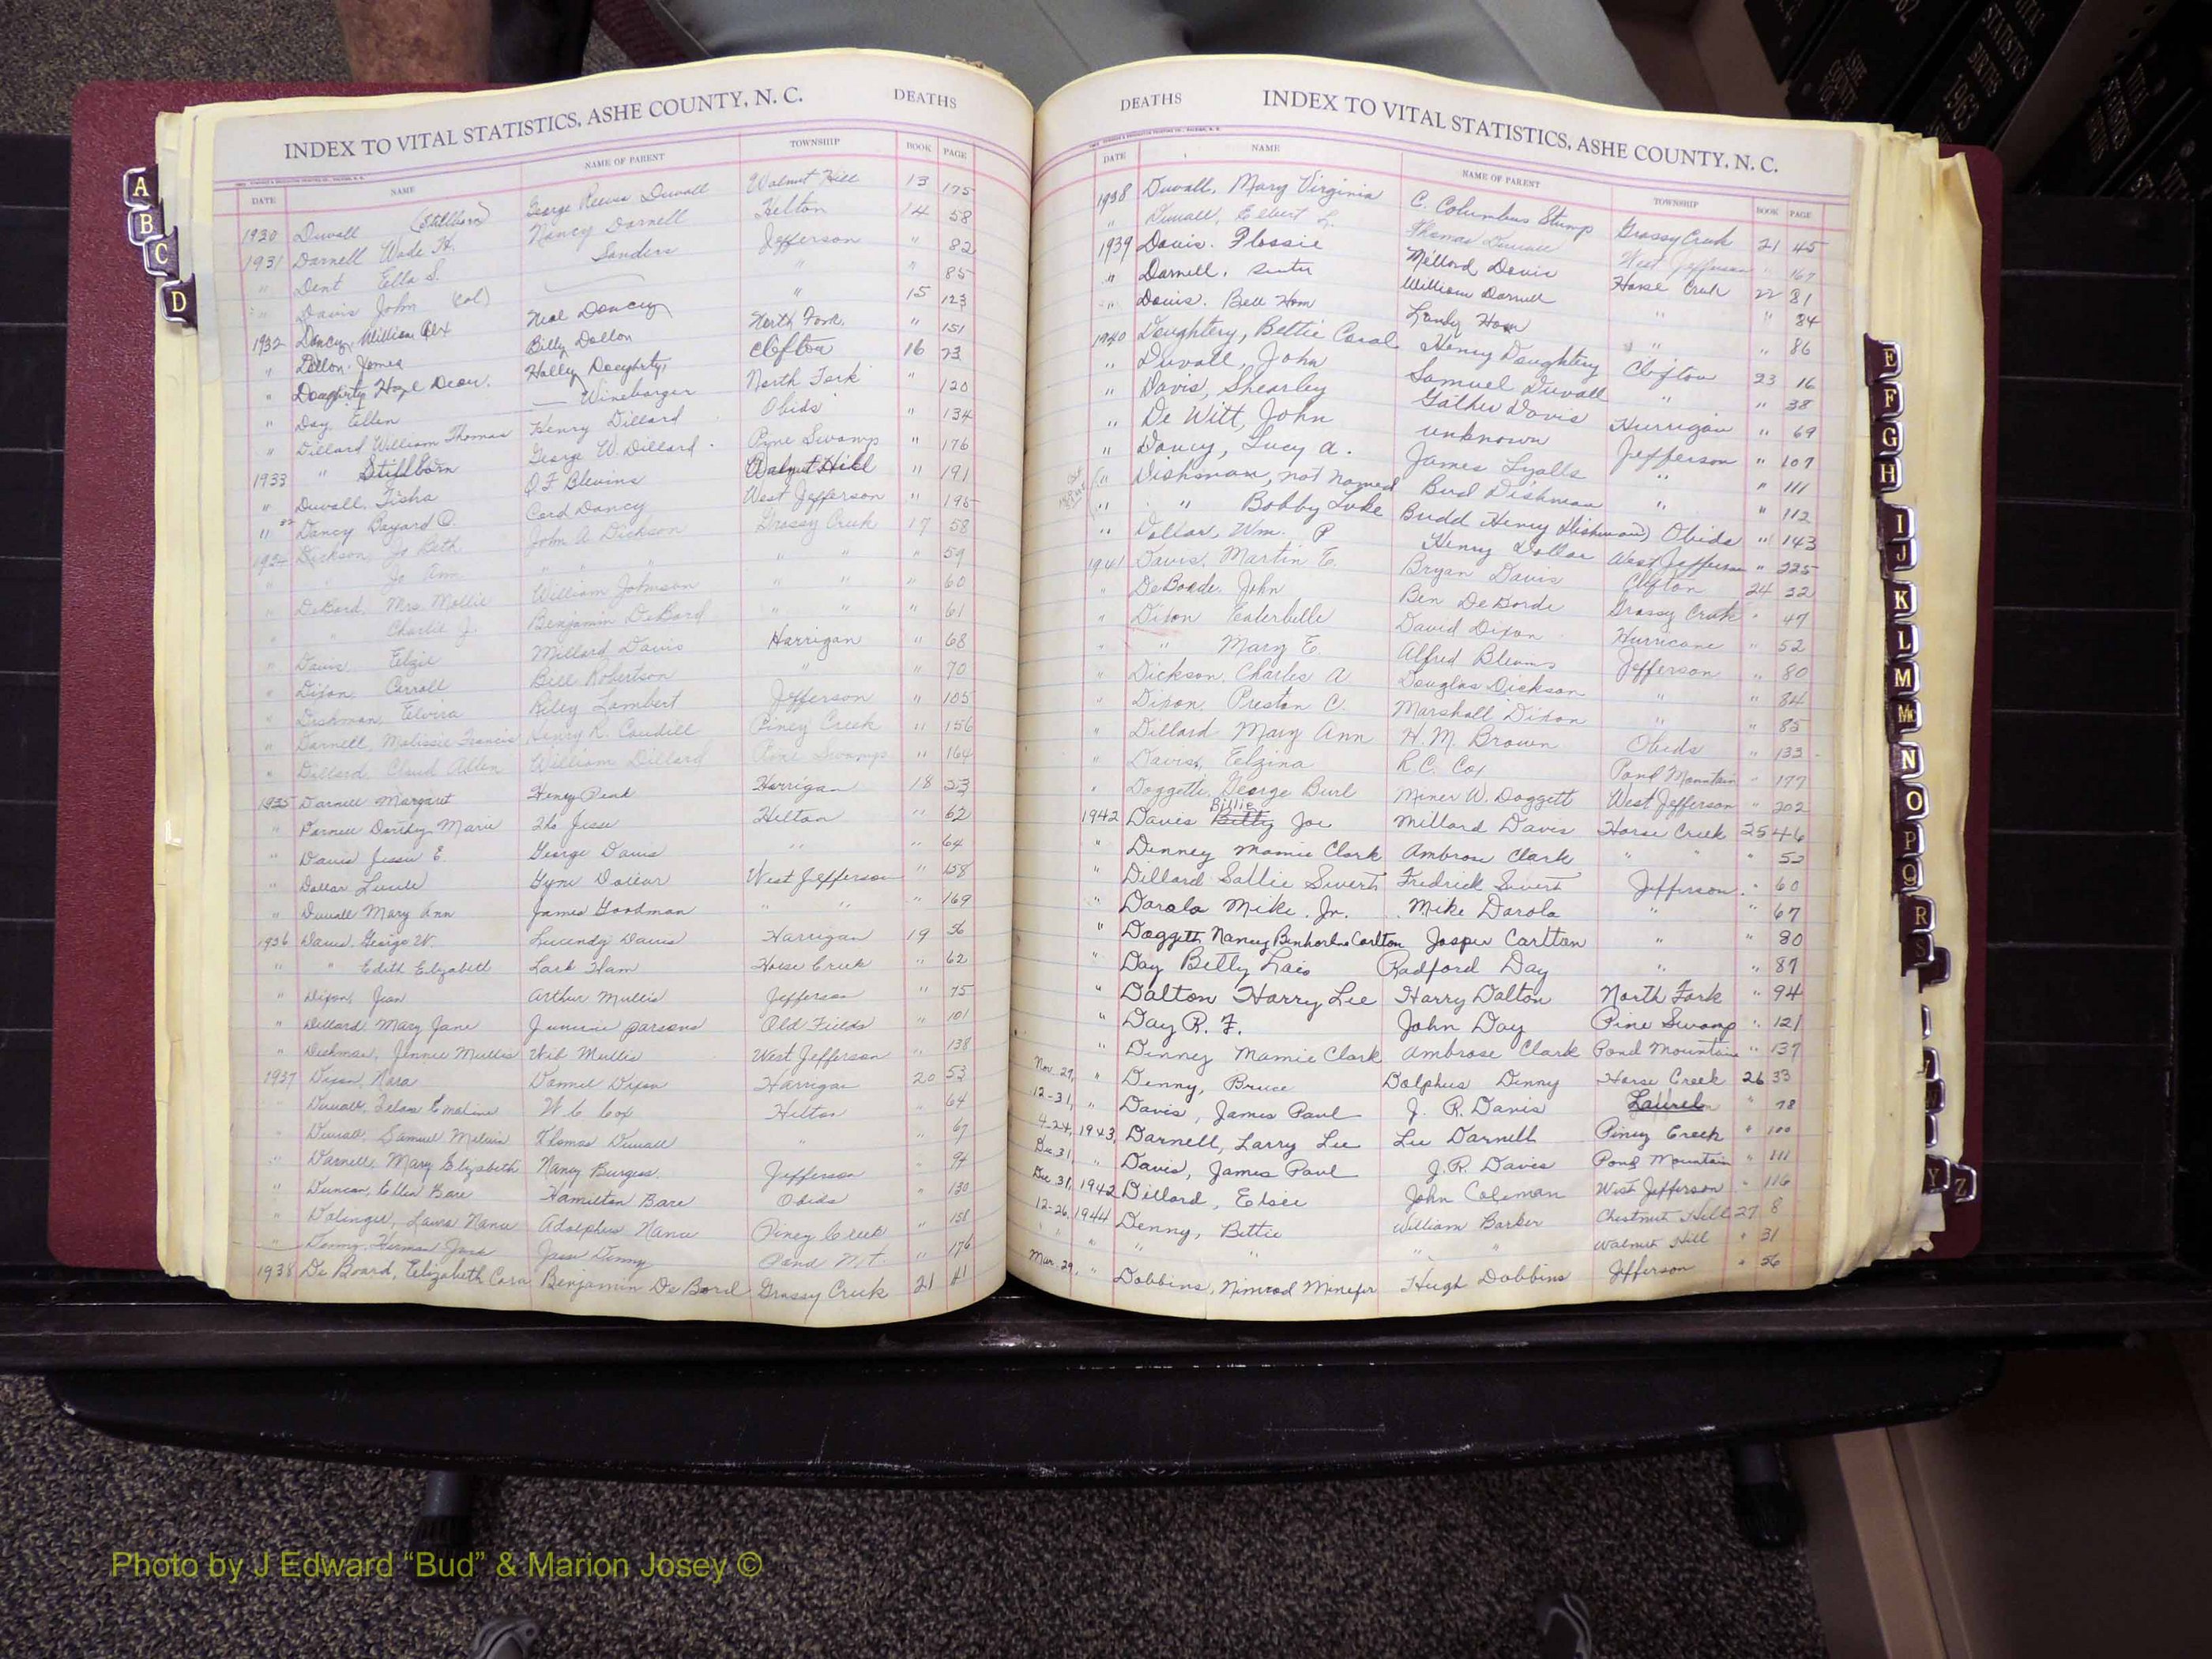 INDEX TO VITAL STATISTICS, ASHE COUNTY, N. C. DEATHS
DATE NAME NAME OF PARENT TOWNSHIP BOOK PAGE
1930 Duvall (Stillborn) George Reeves Duvall Walnut Hill 13 175
1931 Darnell Wade H. Nancy Darnell Helton 14 58
" Dent Ella S. Sanders Jefferson " 82
" Davis John (Col) " " 85
1932 Dancy, William Alex Neal Dancy North Fork 15 123
" Dollon James Billy Dollon Clifton " 151
" Dougherty Hazel Dean. Holly Dougherty, North Fork 16 23
" Day, Ellen — Winebarger Obids " 120
" Dillard William Thomas Henry Dillard Pyne Swamps " 134
1933 " Stillborn George W. Dillard Walnut Hill " 176
" Duvall, Tisha Q F Blevins West Jefferson " 191
" Dancy Bayard O. Cord Dancy Grassy Creek " 195
1934 Dickson, Jo Beth John A Dickson " " 17 58
" " Jo Ann " " " " " 59
" DeBord, Mrs. Mollie William Johnson " " " 60
" " Charlie J. Benjamin DeBord " " " 61
" Davis, Elzie Millard Davis Harrigan " 68
" Dixon, Carroll Bill Robertson " " 70
" Dishman, Elvira Riley Lambert Jefferson " 105
" Darnell, Malissie Francis Henry R. Caudill Piney Creek " 156
" Dillard, Claud Allen William Dillard Pine Swamps " 164
1935 Darnell Margaret Henry Peak Harrigan 18 53
" Darnell Dorthy Marie Tho Jesse Helton " 62
" Davis Jessie E. George Davis " " 64
" Dollar Lucile Gyne Dollar West Jefferson " 158
" Duvall Mary Ann James Goodman " " " 169
1936 Davis, George W. Lucindy Davis Harrigan 19 56
" " Edith Elizabeth Lark Ham Horse Creek " 62
" Dixon, Jean Arthur Mullis Jefferson " 75
" Dillard, Mary Jane Parsons Old Fields " 101
" Dishman, Jennie Mullis Wib Mullis West Jefferson " 138
1937 Dixon, Nora Daniel Dixon Harrigan 20 53
Duvall, Emaline W. C. Cox Helton " 64
" Duvall, Samuel Melvin Thomas Duvall " " 67
" Darnell, Mary Elizabeth Nancy Burgess. Jefferson " 94
" Duncan, Ellen Bare Hamilton Bare Obids " 130
" Dolinger, Laura Nance Adolphus Nance Piney Creek " 158
Denny, Herman Jack Jason Denny Pond Mt. " 176
1938 De Board, Elizabeth Cora Benjamin De Bord Grassy Creek 21 41
DEATHS INDEX TO VITAL STATISTICS, ASHE COUNTY, N. C.
DATE NAME NAME OF PARENT TOWNSHIP BOOK PAGE
1938 Duvall, Mary Virginia C. Columbus Stump Grassy Creek 21 45
" Duvall, Elbert L. Thomas Duvall West Jefferson " 167
1939 Davis. Flossie Millard Davis Horse Creek 22 81
" Darnell. William Darnell " " 84
" Davis. Bell Ham Landy Ham " " 86
1940 Doughtery, Bettie Carol Henry Doughtery Clifton 23 16
" Duvall, John Samuel Duvall " " 38
" Davis, Shearley Gather Davis Hurrigan " 69
" De Witt, John unknown Jefferson " 107
" Dancy, Lucy A. James Lyalls " " 111
" Dishman, not named Bud Dishman " " 112
" " Bobby Luke Budd Henry (Dishman) Obids " 143
" Dollar, Wm. P Henry Dollar West Jefferson " 225
1941 Davis, Martin E. Bryan Davis Clifton 24 32
" DeBorde, John Ben DeBorde Grassy Creek " 47
" Dixon Eaterbelle David Dixon Hurricane " 52
" " Mary E. Alfred Blevins Jefferson " 80
" Dickson, Charles A. Douglas Dickson " " 84
" Dixon, Preston C. Marshall Dixon " " 85
" Dillard Mary Ann H. M. Brown Obids " 133
" Davis, Elzina R. C. Cox Pond Mountain " 177
" Doggett, George Burl Miner W. Doggett West Jefferson " 202
1942 Daves Betty Billie Joe Millard Davis Horse Creek 25 46
" Denney Mamie Clark Ambrose Clark " " " 52
" Dillard Sallie Sivert Fredrick Sivert Jefferson " 60
" Darola Mike. Jr. Mike Darola " " 67
" Doggett, Nancy Carlton Josper Carltan " " 80
" Day Betty Lois Radford Day " " 87
" Dalton Harry Lee Harry Dalton North Fork " 94
" Day R. F. John Day Pine Swamp " 121
" Dinney Mamie Clark Ambrose Clark Pond Mountain " 137
Nov. 27, " Denny, Bruce Dolphus Denny Horse Creek 26 33
12-31, " Davis, James Paul J. R. Davis Laurel " 78
4-24, 1943, Darnell, Larry Lee Lee Darnell Piney Creek " 100
Dec 31, " Davis, James Paul J. R. Davis Pond Mountain " 111
Dec. 31, 1942 Dillard, Elsie John Coleman West Jefferson " 116
12-26, 1944 Denny, Bettie William Barker Chestnut Hill 27 8
" " " " " " Walnut Hill " 31
Mar. 29, " Dobbins, Nimrod Minefer Hugh Dobbins Jefferson " 56
A
B
C
D
E
F
G
H
I
J
K
L
M
Mc
N
O
P
Q
R
S
Y
Z
VITAL STATISTICS BIRTHS 1963
Photo by J Edward “Bud” & Marion Josey ©